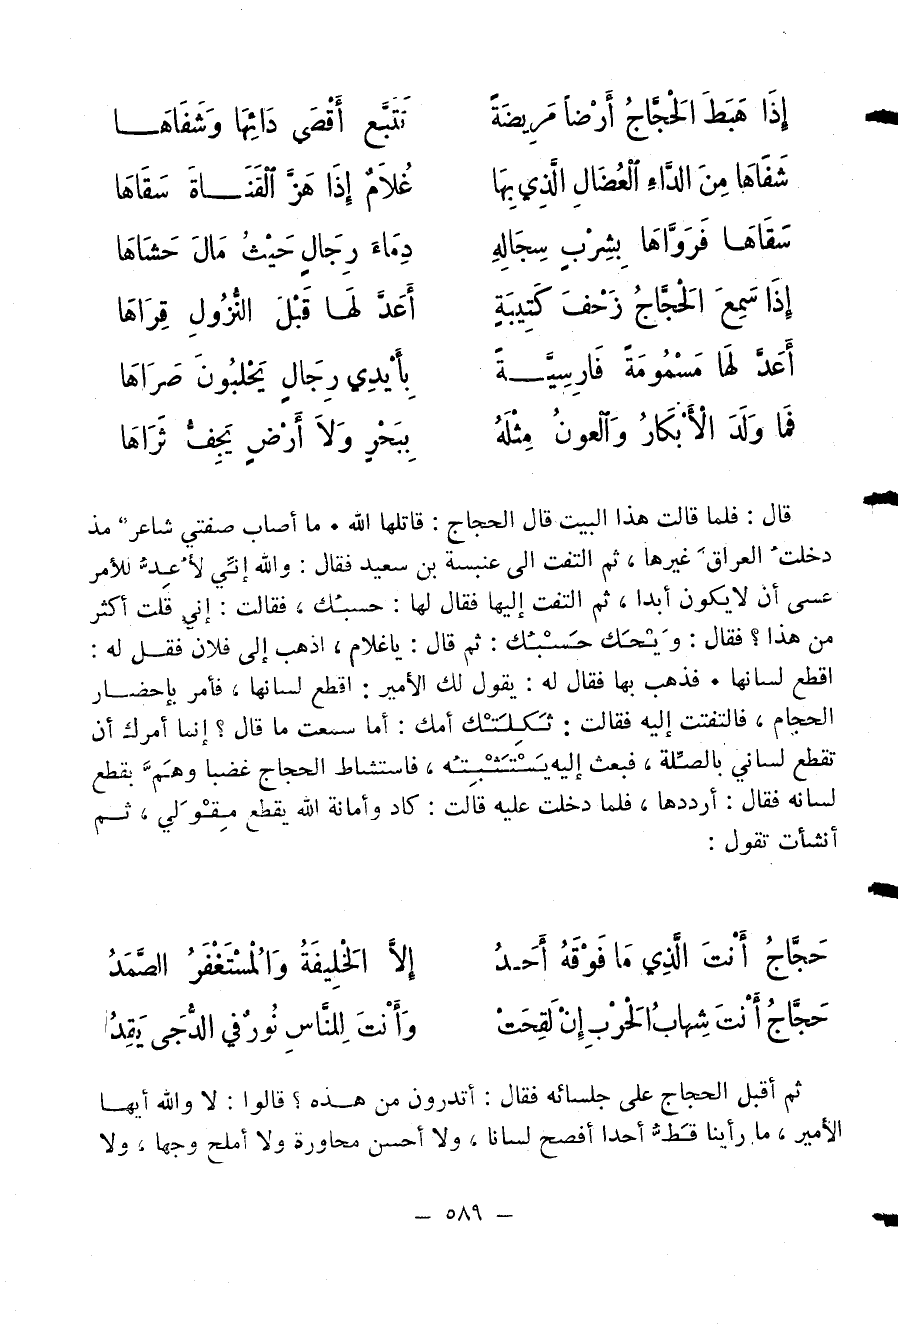 إِذَا هَبَطَ الْحَجَّاجُ أَرْضاً مَرِيضَةً تَتَبَّع أَقْصَى دَائِهَا وَشَفَاهَـــا
شَفَاهَا مِنَ الدَّاءِ ٱلْعُضَالِ الَّذِي بِهَا غُلَامٌ إِذَا هَزَّ ٱلْقَنَـــاةَ سَقَاهَا
سَقَاهَـا فَرَوَّاهَا بِشِرْبٍ سِجَالِهِ دِمَاءَ رِجَالٍ حَيْثُ مَالَ حَشَاهَا
إِذَا سَمِعَ الْحَجَّاجُ زَحْفَ كَتِيبَةٍ أَعَدَّ لَهَـا قَبْلَ النُّزُولِ قِرَاهَا
أَعَدَّ لَهَا مَسْمُومَةً فَارِسِيَّـــةً بِأَيْدِي رِجَالٍ يَحْلبُونَ صَرَاهَا
فَمَا وَلَدَ الْأَبْكَارُ وَٱلْعونُ مِثْلَهُ بِبَحْرٍ وَلَا أَرْضٍ يَجِفُّ ثَرَاهَا
قال : فلما قالت هذا البيت قال الحجاج : قاتلها الله ٠ ما أصاب صفتي شاعرٌ مذ
دخلتُ العراقَ غيرها ، ثم التفت الى عنبسة بن سعيد فقال : والله إنّي لأُعِدُّ للأمر
عسى أن لايكون أبدا ، ثم التفت إليها فقال لها : حسبُك ، فقالت : إني قلت أكثر
من هذا ؟ فقال : وَيْحَك حَسْبُك : ثم قال : ياغلام ، اذهب إلى فلان فقـــل له :
اقطع لسانها ٠ فذهب بها فقال له : يقول لك الأمير : اقطع لسانها ، فأمر بإحضـــار
الحجام ، فالتفتت إليه فقالت : ثَكِلَتْك أمك : أما سمعت ما قال ؟ إنما أمرك أن
تقطع لساني بالصِّلة ، فبعث إليه يَسْتَثْبِتُه ، فاستشاط الحجاج غضبا وهَمَّ بقطع
لسانه فقال : أرددها ، فلما دخلت عليه قالت : كاد وأمانة الله يقطع مِقْوَلي ، ثــم
أنشأت تقول :
حَجَّاجُ أَنْتَ الَّذِي مَا فَوْقَهُ أَحَـدُ إِلَّا الْخَلِيفَةُ وَالْمُسْتَغْفَرُ الصَّمَدُ
حَجَّاجُ أَنْتَ شِهابُ الْحَرْبِ إِنْ لَقِحَتْ وَأَنْتَ لِلنَّاسِ نُورٌ في الدُّجَى يَقِدُ
ثم أقبل الحجاج على جلسائه فقال : أتدرون من هـــذه ؟ قالوا : لا والله أيهـــا
الأمير ، ما رأينا قَطُّ أحدا أفصح لسانا ، ولا أحسن محاورة ولا أملح وجها ، ولا
— ٥٨٩ —